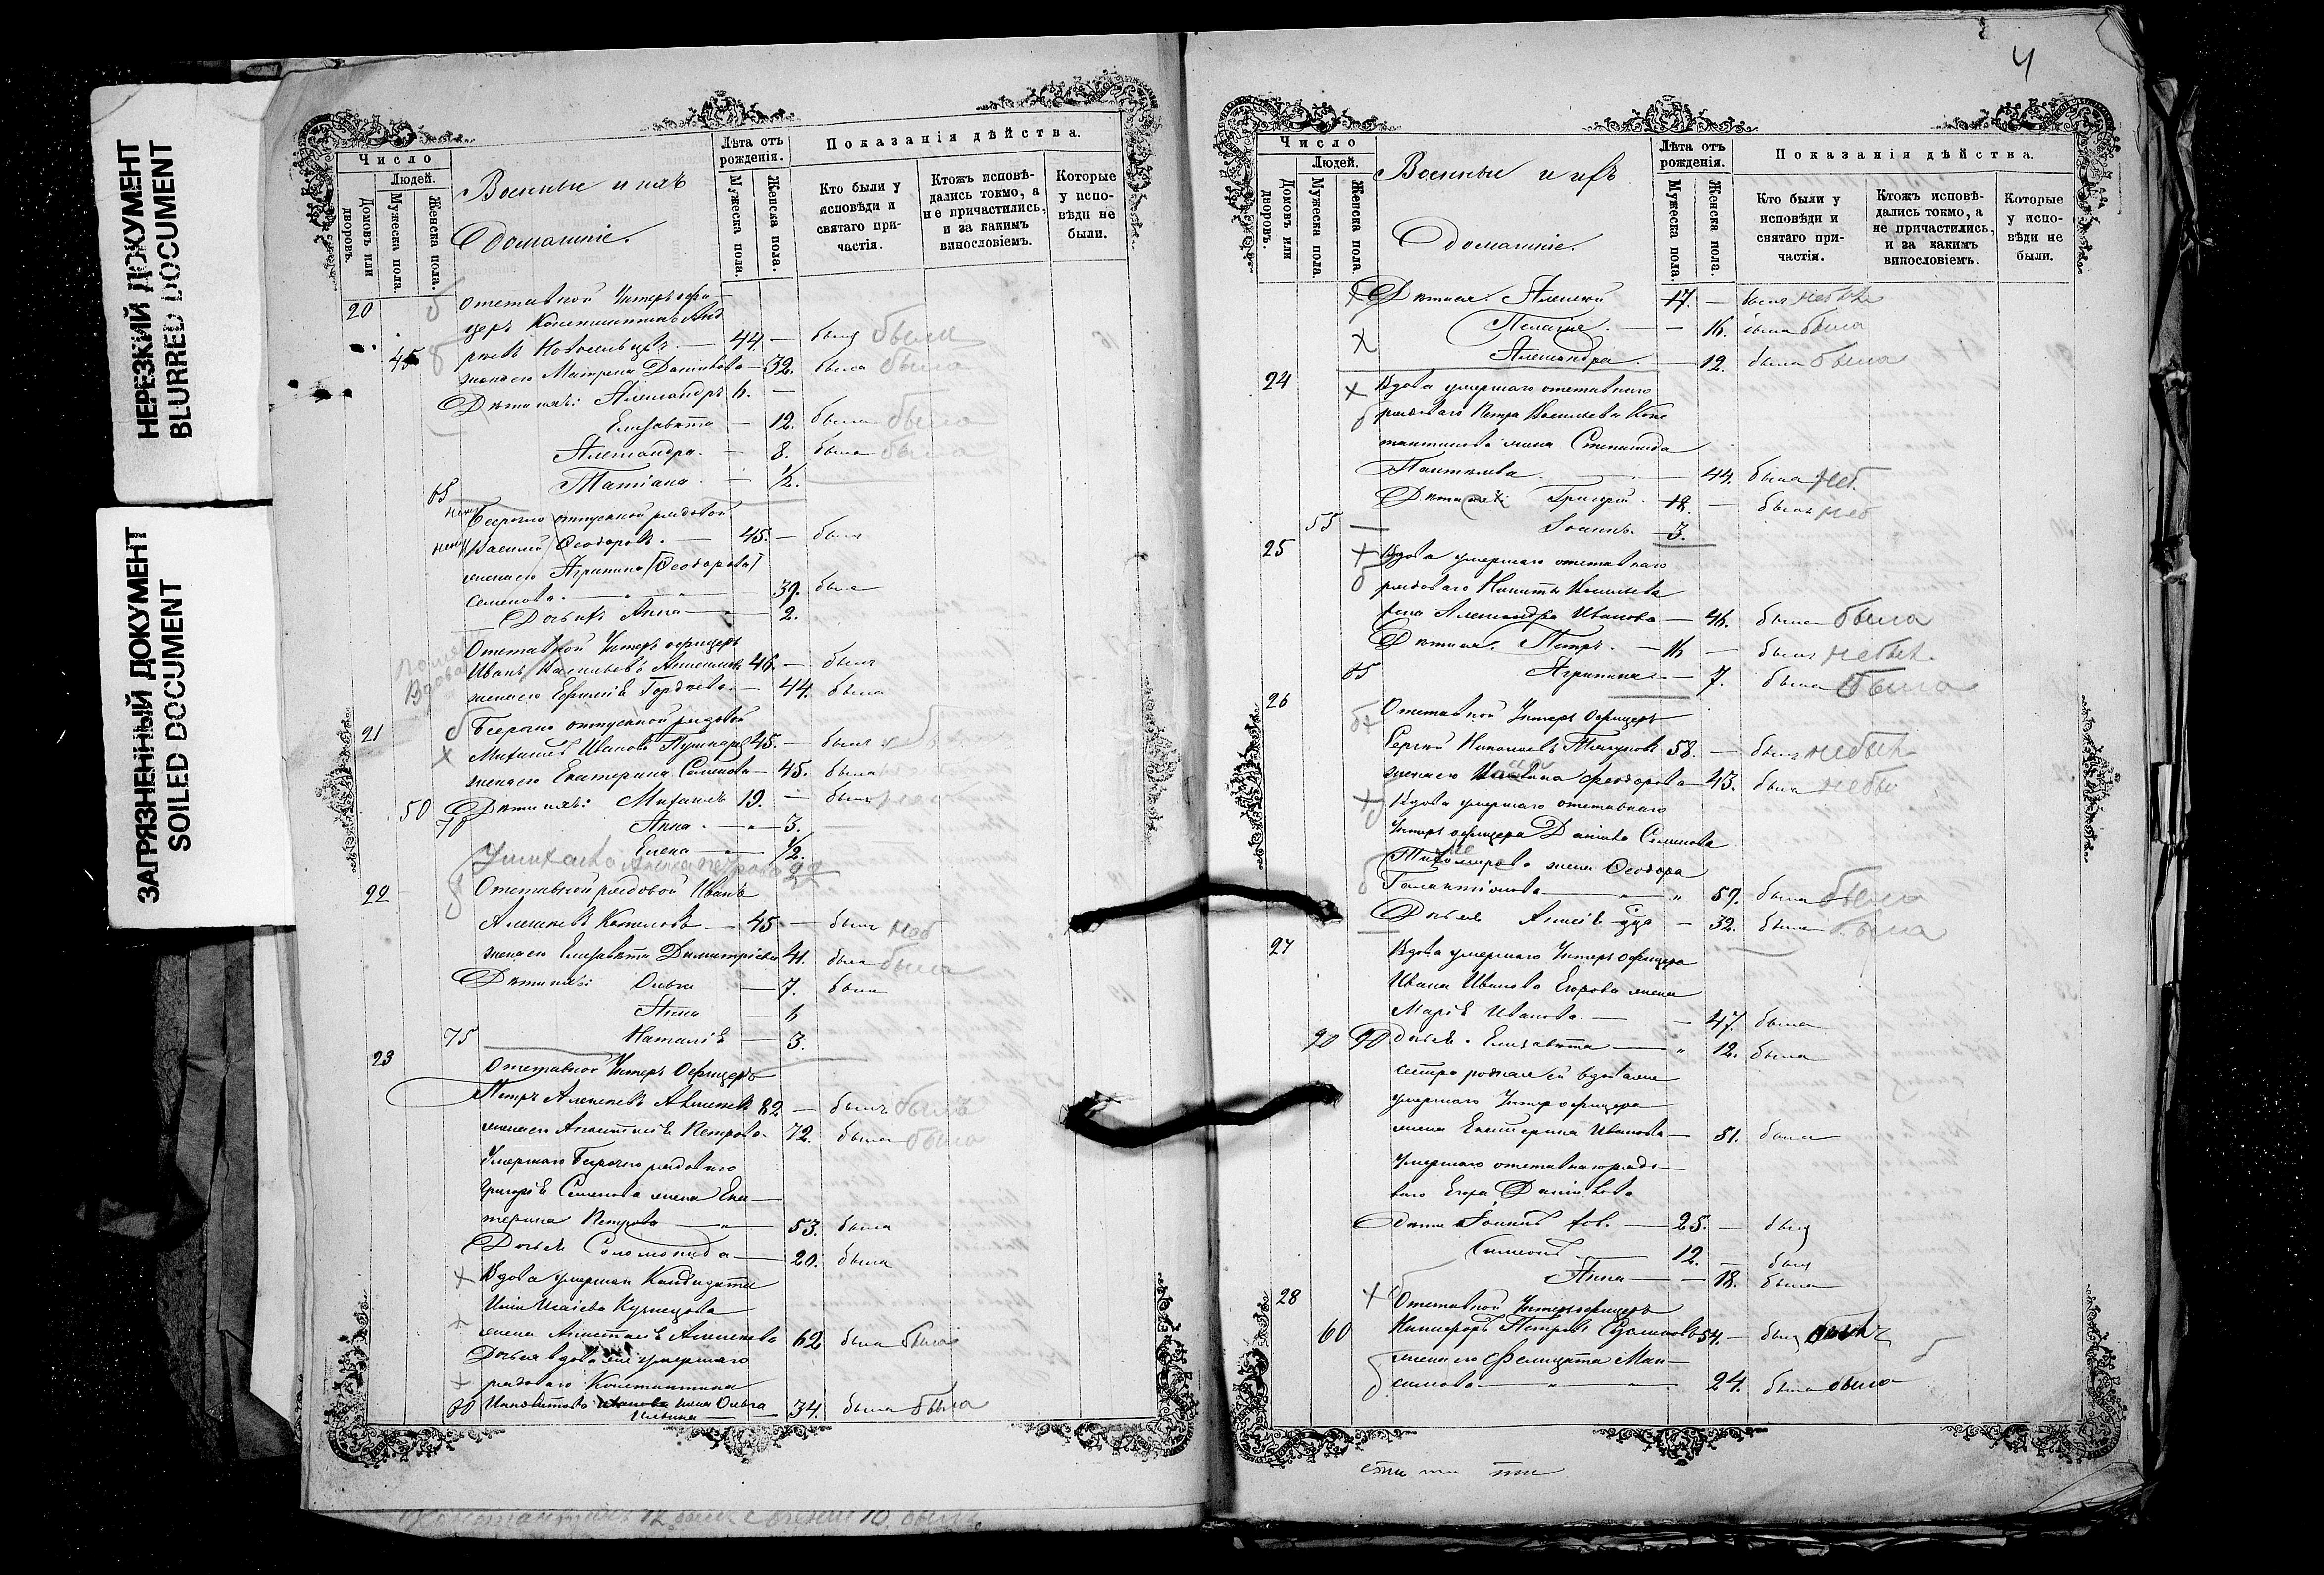 НЕРЕЗКИЙ ДОКУМЕНТ
BLURRED DOCUMENT
ЗАГРЯЗНЕННЫЙ ДОКУМЕНТ
SOILED DOCUMENT
Число
Людей.
Домовъ или дворовъ.
Мужеска пола.
Женска пола.
Военные и ихъ
Домашніе.
Лѣта отъ рожденія.
Мужеска пола.
Женска пола.
Показанія дѣйства.
Кто были у исповѣди и святаго причастія.
Ктожъ исповѣдались токмо, а не причастились, и за какимъ винословіемъ.
Которые у исповѣди не были.
20 Отставной Унтеръ офи
церъ Константинъ
44. — былъ были
45 жена его Матрена 32. была была
Дѣти ихъ: Александръ 6. —
Елизавета — 12. была была
Александра — 8. была была
Татіана — 1/2.
65
Безсрочно отпускной рядовой
Василій Ѳеодоровъ — 45. — былъ
жена его Агрипина (Ѳеодорова)
Семенова — 39. была
Дочь ихъ Анна — 2.
Отставной Унтеръ офицеръ
Иванъ Васильевъ 46. — былъ
Вдова
жена его Гордѣева — 44. была
21 Безсрочно отпускной рядовой
Михаилъ Ивановъ 45. — былъ
жена его Екатерина Семенова — 45. была
50 Дѣти ихъ: Михаилъ 19. — былъ
70 Анна — 3.
Елена — 1/2.
22
22 Отставной рядовой Иванъ
Алексѣевъ — 45 — былъ неб
жена его Елизавета Димитріева 41. была была
Дѣти ихъ: Ольга — 7. была
Анна — 6
75 Наталія — 3.
23 Отставной Унтеръ Офицеръ
Петръ Алексѣевъ 82 — былъ былъ
жена его Анастасія Петрова 72. была была
Умершаго Безсрочно рядоваго
Григорія Семенова жена Ека—
терина Петрова — 53. была
Дочь ея Соломонида — 20. была
Вдова умершаго Кандидата
Кузнецова
жена Анастасія Алексѣева 62 была была
Дочь ея вдова умершаго
рядоваго Константина
80 жена Ольга
Ильина — 34. была была
4
Число
Людей.
Домовъ или дворовъ.
Мужеска пола.
Женска пола.
Военные и ихъ
Домашніе.
Лѣта отъ рожденія.
Мужеска пола.
Женска пола.
Показанія дѣйства.
Кто были у исповѣди и святаго причастія.
Ктожъ исповѣдались токмо, а не причастились, и за какимъ винословіемъ.
Которые у исповѣди не были.
Дѣти ея: Алексѣй 17. — былъ небылъ
Пелагія — 16. была была
Александра — 12. была была
24 Вдова умершаго отставнаго
рядоваго Петра Васильева Конс
тантинова жена Степанида
Пантелѣева — 44. была неб.
Дѣти ея: Григорій 18. — былъ неб
55 Іоаннъ 3.
25 Вдова умершаго отставнаго
рядоваго Никиты Васильева
жена Александра Иванова — 46. была была
Дѣти ея: Петръ — 16 — былъ небылъ
85 Агрипина — 7. была была
26 Отставной Унтеръ Офицеръ
Сергѣй Николаевъ 58. — былъ небылъ
жена его Ѳеодорова — 43. была небы
Вдова умершаго отставнаго
Унтеръ офицера Даніила Семенова
Тихомирова жена Ѳеодора
Галактіонова — 59. была была
Дочь ея — 32. была была
27 Вдова умершаго Унтеръ Офицера
Ивана Иванова Егорова жена
Марія Иванова — 47. была
90 90 дочь ея Елизавета — 12. была
сестра родная ей вдова
умершаго Унтер офицера
жена Екатерина Иванова — 51. была
Умершаго отставнаго рядо—
ваго Егора Даніилова
дѣти Іоаннъ — 25. — былъ
Симеонъ — 12. — былъ
Анна — 18. была
28 Отставной Унтеръ офицеръ
60 Никифоръ Петровъ 54. — былъ былъ
жена его Фелицата Мак—
симова — 24. была была